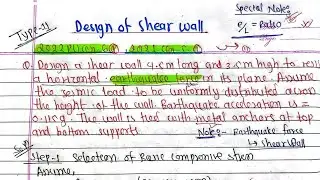 Type-II
Design of Shear wall
Special Note:
e/L = Ratio
Q. Design a shear wall 4.cm long and 3.cm high to resist
a horizontal earthquake force in its plane. Assume
the seismic load to be uniformly distributed across
the height of the wall. Earthquake acceleration is =
0.11g. The wall is tied with metal anchors at top
and bottom supports. Note:- Earthquake force
→ shear wall
Step-1 Selection of Basic compressive stress
Assume,